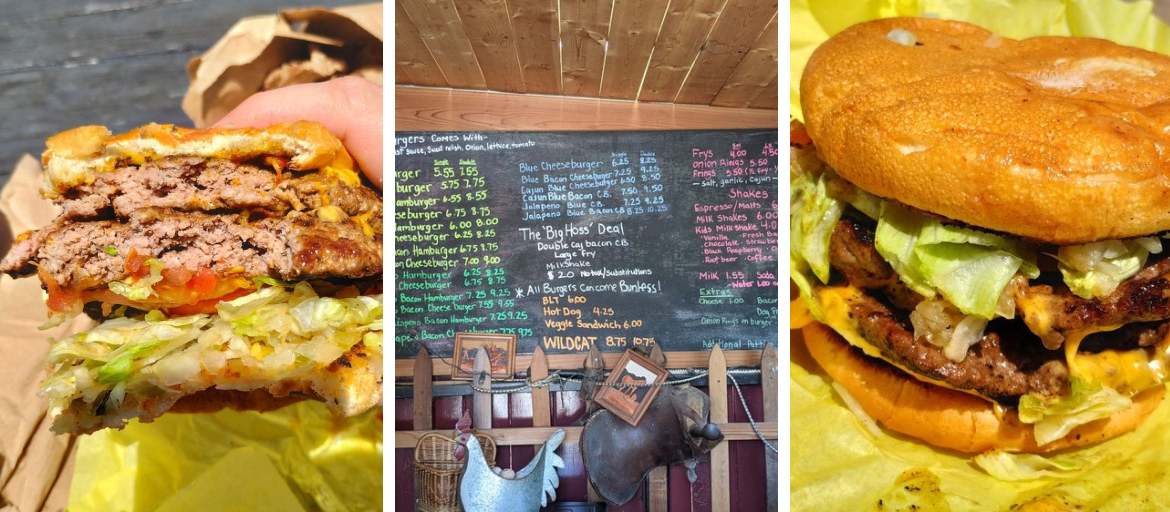 urgers Comes With-
sauce, Sweet relish, Onion, lettuce, tomato
Single Double
urger 5.55 7.55
burger 5.75 7.75
Hamburger 6.55 8.55
eseburger 6.75 8.75
Hamburger 6.00 8.00
heeseburger 6.25 8.25
on Hamburger 6.75 8.75
on Cheeseburger 7.00 9.00
Hamburger 6.25 8.25
Cheeseburger 6.75 8.75
Bacon Hamburger 7.25 9.25
Bacon Cheese burger 7.55 9.55
lapeno Bacon Hamburger 7.25 9.25
Bacon Cheeseburger 7.75 9.75
Single Double
Blue Cheeseburger 6.25 8.25
Blue Bacon Cheeseburger 7.25 9.25
Cajun Blue Cheeseburger 6.50 8.50
Cajun Blue Bacon C.B. 7.50 9.50
Jalapeno Blue C.B. 7.25 9.25
Jalapeno Blue Bacon C.B 8.25 10.25
The "Big Hoss" Deal
Double Caj bacon C.B.
Large fry
Milkshake
$ 20 No tax/substitutions
* All Burgers Can come Bunless!
BLT 6.00
Hot Dog 4.25
Veggie Sandwich 6.00
WILDCAT 8.75 10.75
Frys 4.00 4.50
Onion Rings 5.50
Frings 5.50
- Salt, garlic, Cajun
Shakes
Espresso/Malts
Milk Shakes 6.00
Kids Milk Shake
Vanilla -Fresh Ba
.Chocolate - Strawbe
.Black Raspberry - O
.Root beer - Coffee
Milk 1.55 Soda
-Water 1.00
Extras
Cheese 1.00 Bacon
Dog P
Onion Rings on burger
Additional Patti